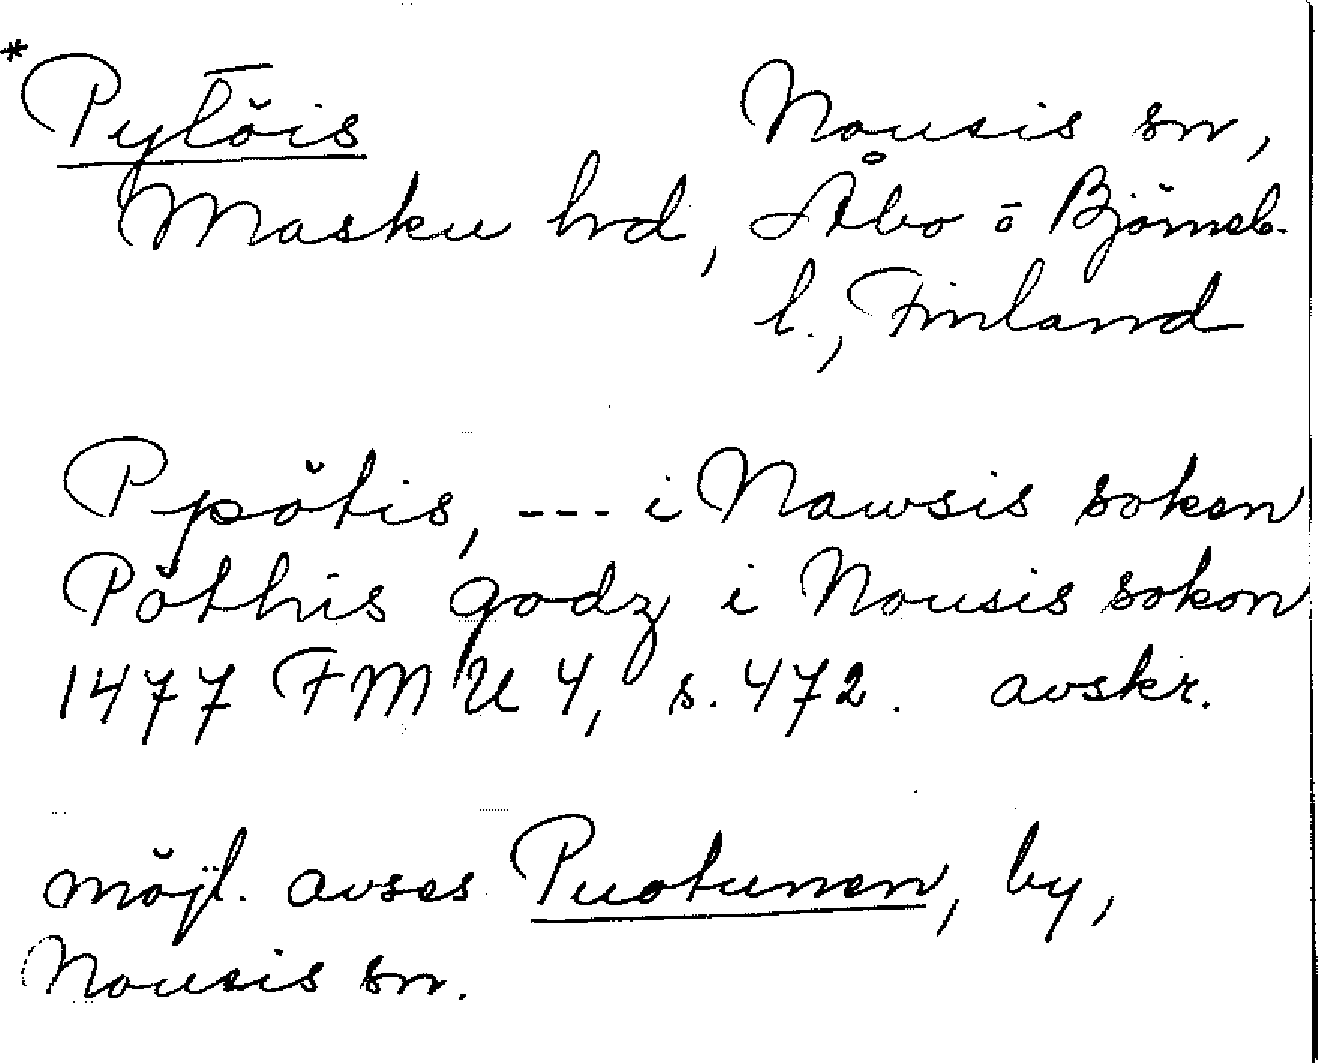 *Pytöis Nousis sn,
Masku hrd, Åbo o Björneb.
l., Finland
Ppötis, --- i Nawsis soken
Pöthis godz i Nousis sokon
1477 FMU 4, s. 472. avskr.
möjl. avses Puotunen, by,
Nousis sn.